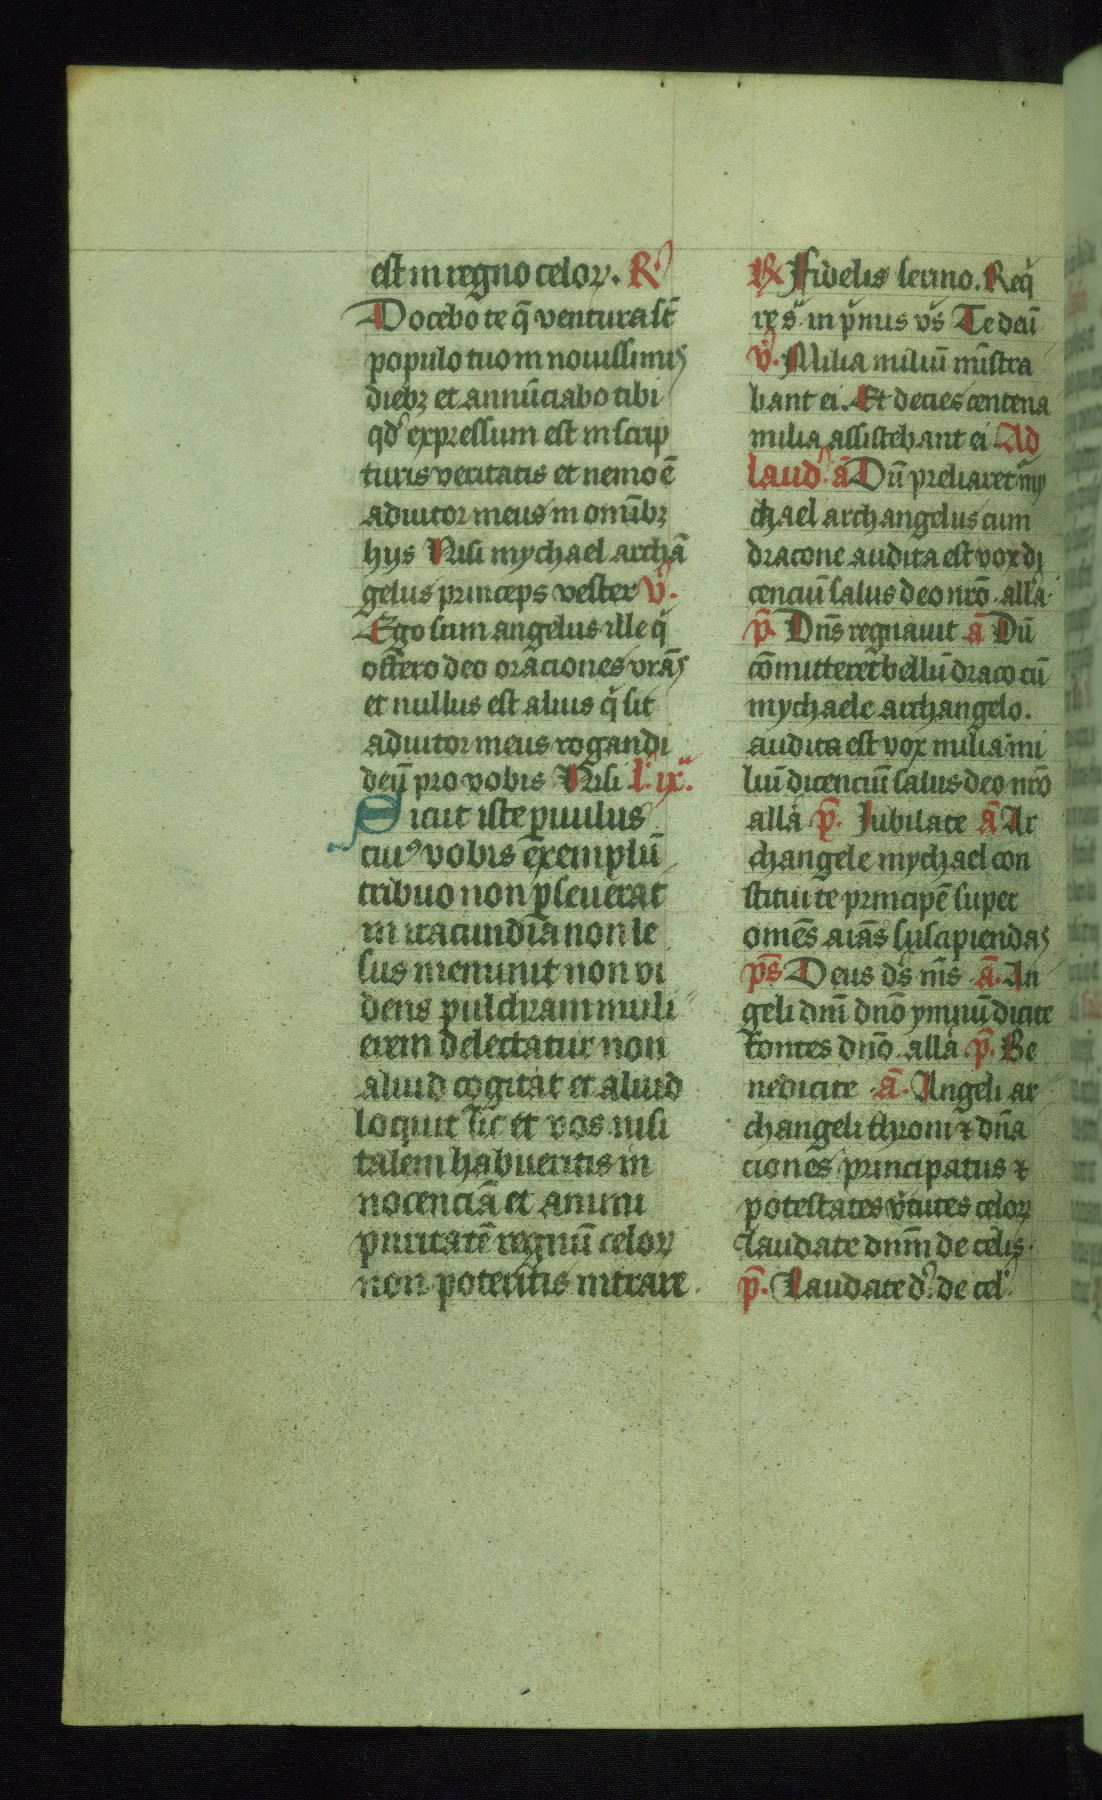 est in regno celoꝝ. R̸
Docebo te q̄ ventura st̄
populo tuo in nouissimis
diebꝫ et annūciabo tibi
qd' expressum est in scrip
turis veritatis et nemo ē
adiutor meus in omībꝫ
hijs Nisi mychael archā
gelus princeps vester v̊.
Ego sum angelus ille q̊
offero deo oraciones vrā̄s
et nullus est alius q̊ sit
adiutor meus rogandi
deū pro vobis Nisi l'. ixª.
Sicut iste ꝑuulus
cuiꝰ vobis exemplū
tribuo non ꝑseuerat
in iracundia non le
sus meminit non vi
dens pulchram muli
erem delectatur non
aliud cogitat et aliud
loquit᷑ sic et vos nisi
talem habueritis in
nocenciā et animi
puritatē regnū celoꝝ
non poteritis intrare.
R̸ Fidelis sermo. Req̊
re s̊ in p̊mus vs̄ Te deū
v̊. Milia miliū mīstra
bant ei. Et decies centena
milia assistebant ei Ad
laud' ā Dū preliaret᷑ my
chael archangelus cum
dracone audita est vox di
cenciū salus deo nrō. alla
p̄. Dn̄s regnauit ā Dū
cōmitteret᷑ bellū draco cū
mychaele archangelo.
audita est vox milia mi
liū dicenciū salus deo nrō
alla p̄. Jubilate ā Ar
changele mychael con
stitui te principē super
omēs aīās suscipiendas
ps̄ Deus ds̄ m̄s ā. An
geli dn̄i dn̄o ymnū dicite
fontes dn̄o. alla p̄. Be
nedicite ā. Angeli ar
changeli throni ⁊ dn̄a
ciones principatus ⁊
potestates v̊tutes celoꝝ
laudate dn̄m de celis.
p̄. Laudate d'. de cel'